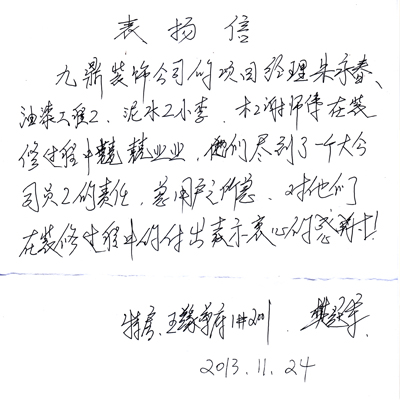 表扬信
九鼎装饰公司的项目经理朱永春、
油漆工程工、泥水工小李、木工谢师傅在装
修过程中兢兢业业，他们尽到了一个大公
司员工的责任，急用户之所急。对他们
在装修过程中的付出表示衷心的感谢！
1#2001
2013.11.24